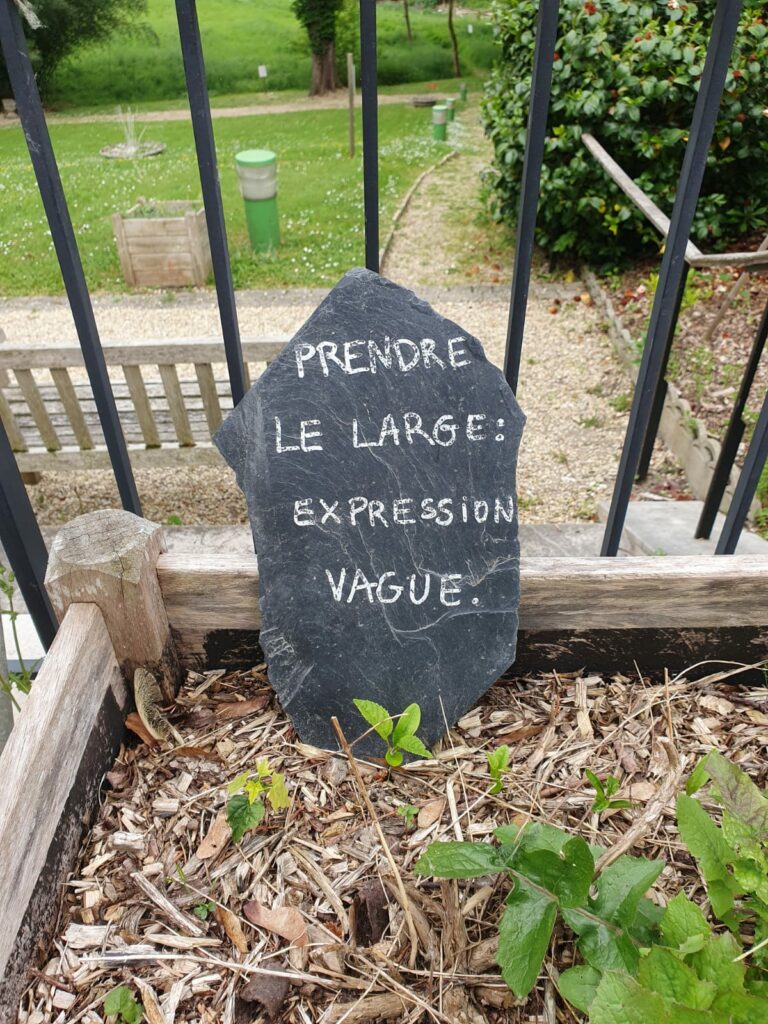 PRENDRE
LE LARGE:
EXPRESSION
VAGUE.